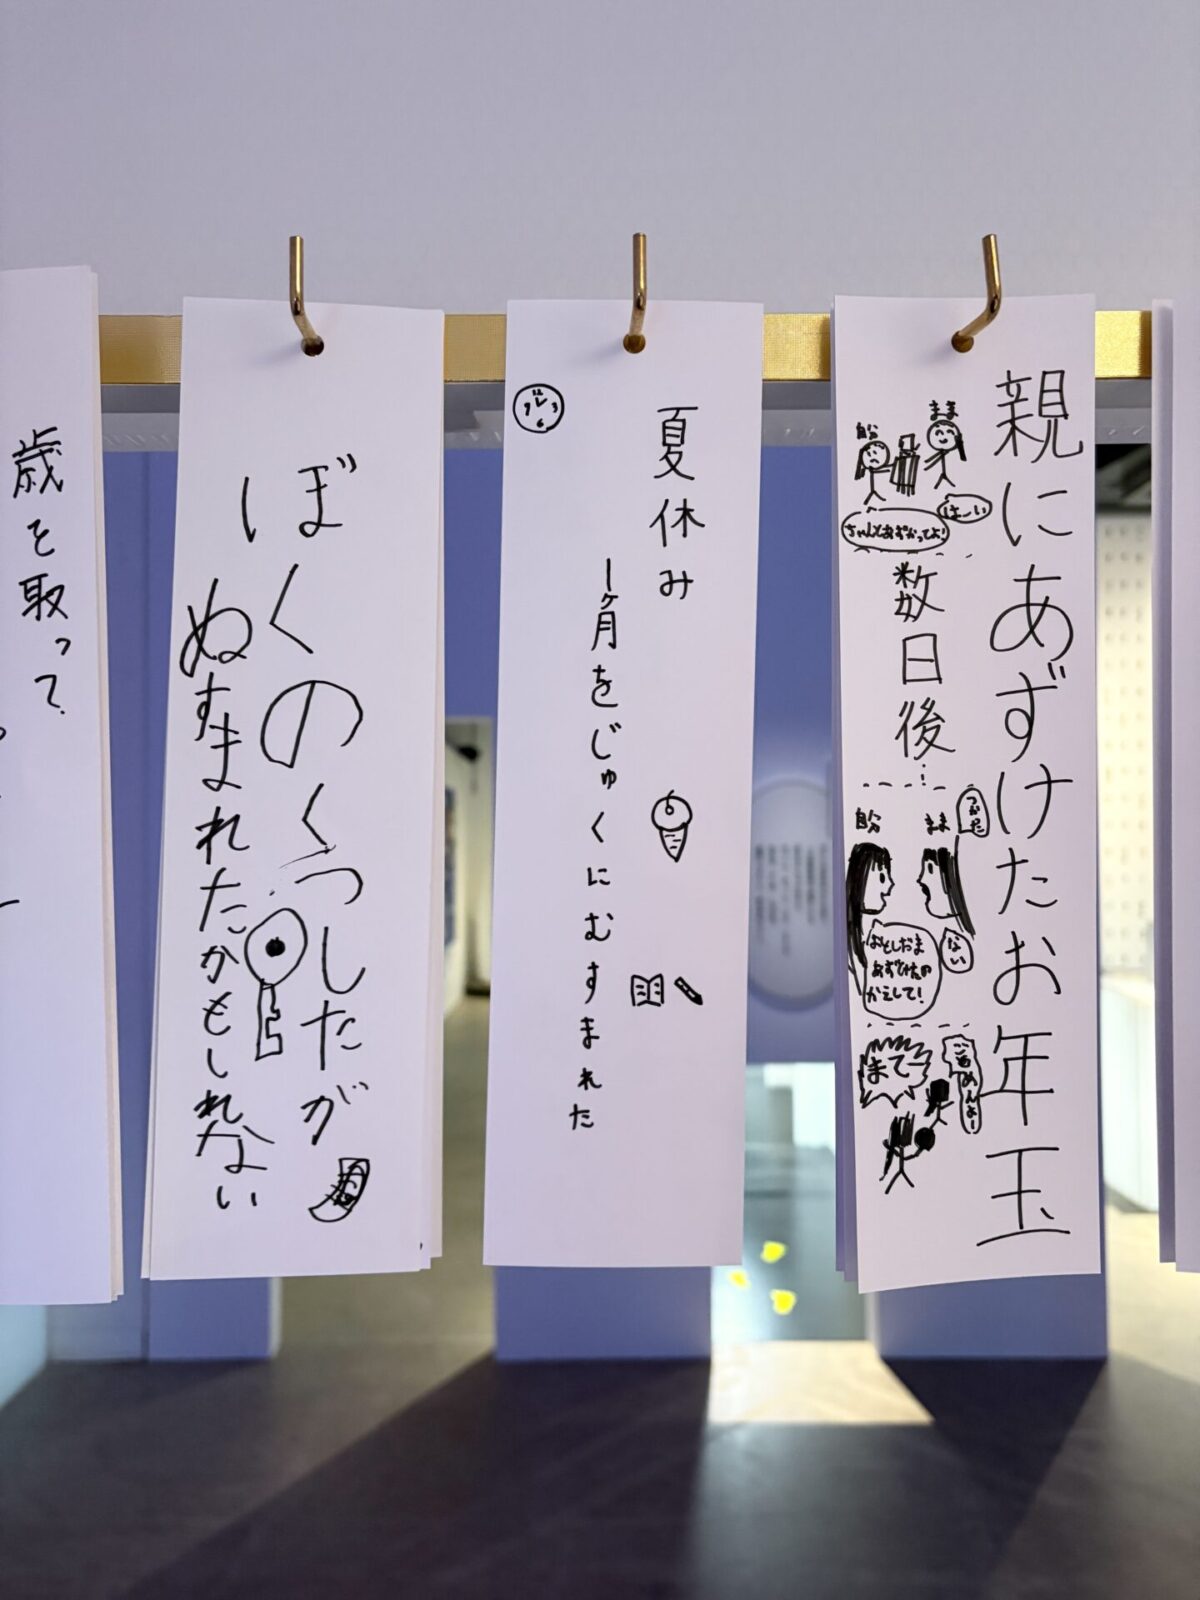 親にあずけたお年玉
まま
自分
はーい
ちゃんとあずかってよ!
数日後…
自分
まま
つかた
おとしだま
あずけたの
かえして!
ない
まて
ごめんよー
夏休み
1ヶ月をじゅくにむすまれた
12
3
6
9
ぼくのくつしたが
ぬすまれたかもしれない
い
歳を取って